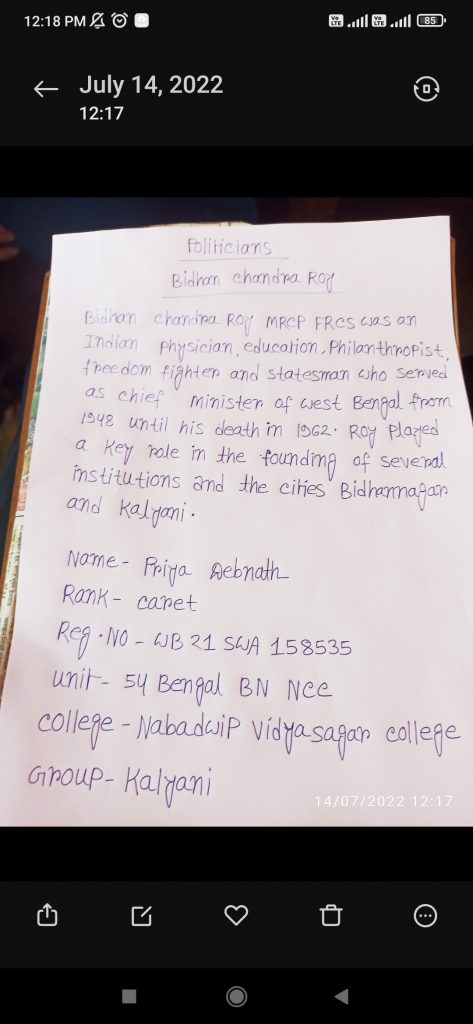 12:18 PM
Vo LTE Vo LTE 85
July 14, 2022
12:17
Politicians
Bidhan chandra Roy
Bidhan chandra Roy MRCP FRCS was an
Indian physician, education, Philanthropist,
freedom fighter and statesman who served
as chief minister of west Bengal from
1948 until his death in 1962. Roy Played
a key role in the founding of several
institutions and the cities Bidhannagar
and Kalyani.
Name - Priya Debnath
Rank - canet
Reg. No - WB 21 SWA 158535
unit - 54 Bengal BN NCC
college - Nabadwip Vidyasagar college
Group - Kalyani
14/07/2022 12:17